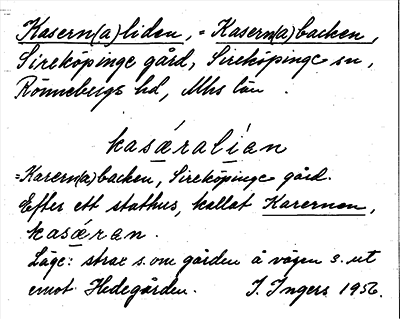 Kasern(a)liden, = Kasern(a)backen,
Sireköpinge gård, Sireköpinge sn,
Rönnebergs hd, Mhs län.
kasæralían
= Kasern(a)backen, Sireköpinge gård.
Efter ett stathus, kallat Kasernen,
kasǽran.
Läge: strax s. om gården å vägen s. ut
emot Hedegården. I. Ingers 1956.